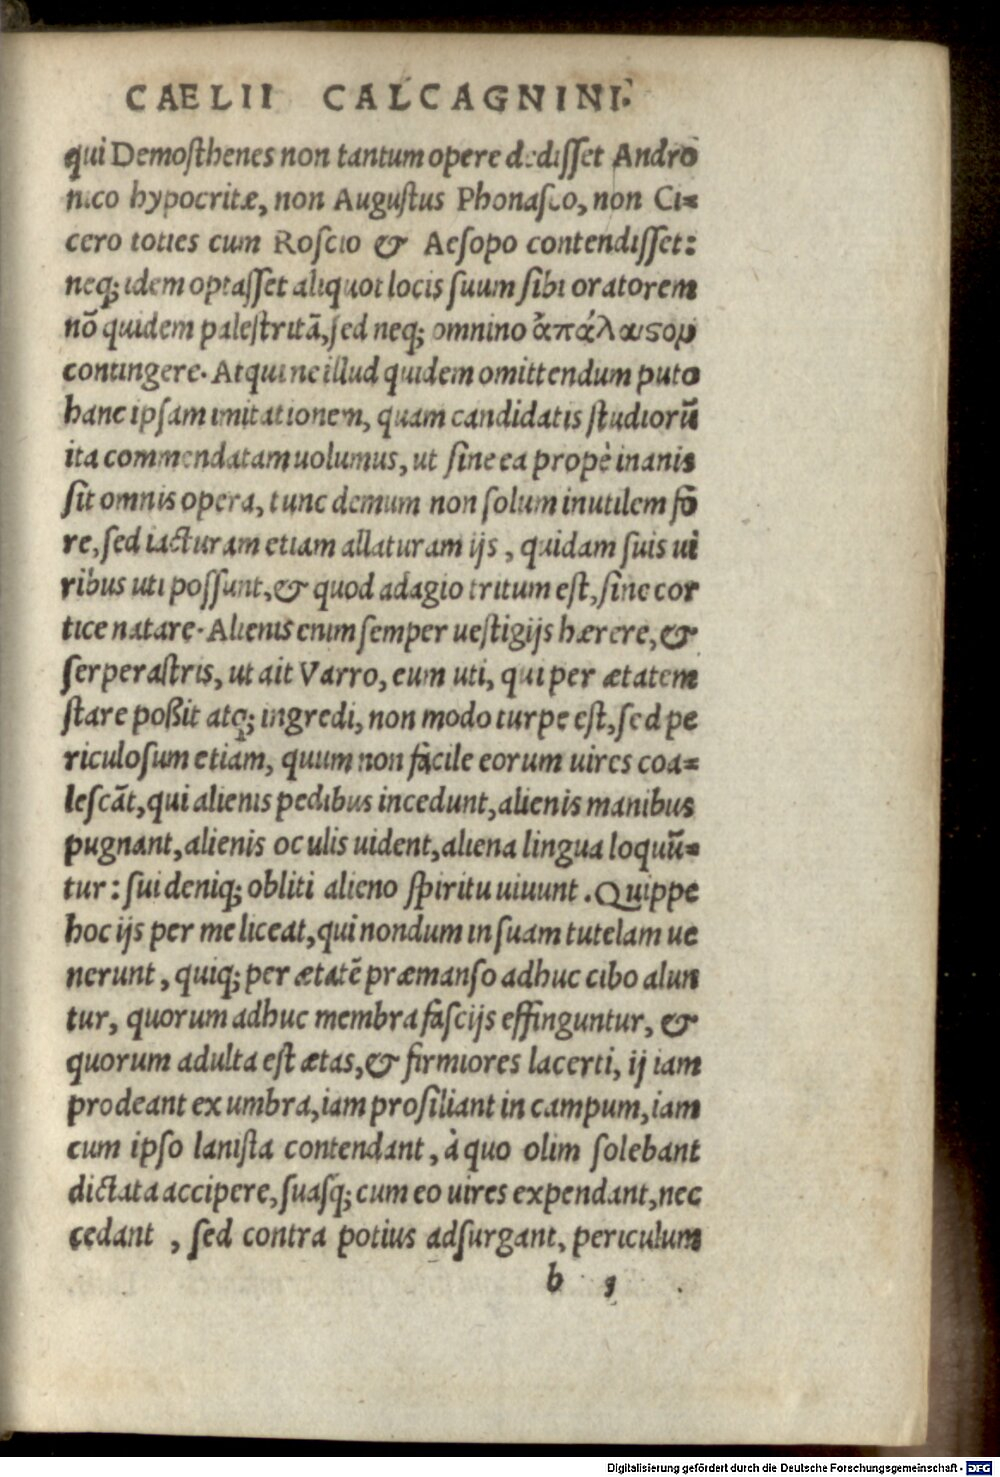 CAELII CALCAGNINI.
qui Demosthenes non tantum opere dedisset Andro
nico hypocritæ, non Augustus Phonasco, non Ci=
cero toties cum Roscio & Aesopo contendisset:
neq; idem optasset aliquot locis suum sibi oratorem
nõ quidem palestritã, sed neq; omnino ἀπάλαιστον
contingere. Atqui ne illud quidem omittendum puto
hanc ipsam imitationem, quam candidatis studiorũ
ita commendatam uolumus, ut sine ea propè inanis
sit omnis opera, tunc demum non solum inutilem fo
re, sed iacturam etiam allaturam ijs, quidam suis ui
ribus uti possunt, & quod adagio tritum est, sine cor
tice natare. Alienis enim semper uestigijs hærere, &
serperastris, ut ait Varro, eum uti, qui per ætatem
stare poßit atq; ingredi, non modo turpe est, sed pe
riculosum etiam, quum non facile eorum uires coa=
lescãt, qui alienis pedibus incedunt, alienis manibus
pugnant, alienis oculis uident, aliena lingua loquũ=
tur: sui deniq; obliti alieno spiritu uiuunt. Quippe
hoc ijs per me liceat, qui nondum in suam tutelam ue
nerunt, quiq; per ætatẽ præmanso adhuc cibo alun
tur, quorum adhuc membra fascijs effinguntur, &
quorum adulta est ætas, & firmiores lacerti, ij iam
prodeant ex umbra, iam prosiliant in campum, iam
cum ipso lanista contendant, à quo olim solebant
dictata accipere, suasq; cum eo uires expendant, nec
cedant, sed contra potius adsurgant, periculum
b
Digitalisierung gefördert durch die Deutsche Forschungsgemeinschaft - DFG